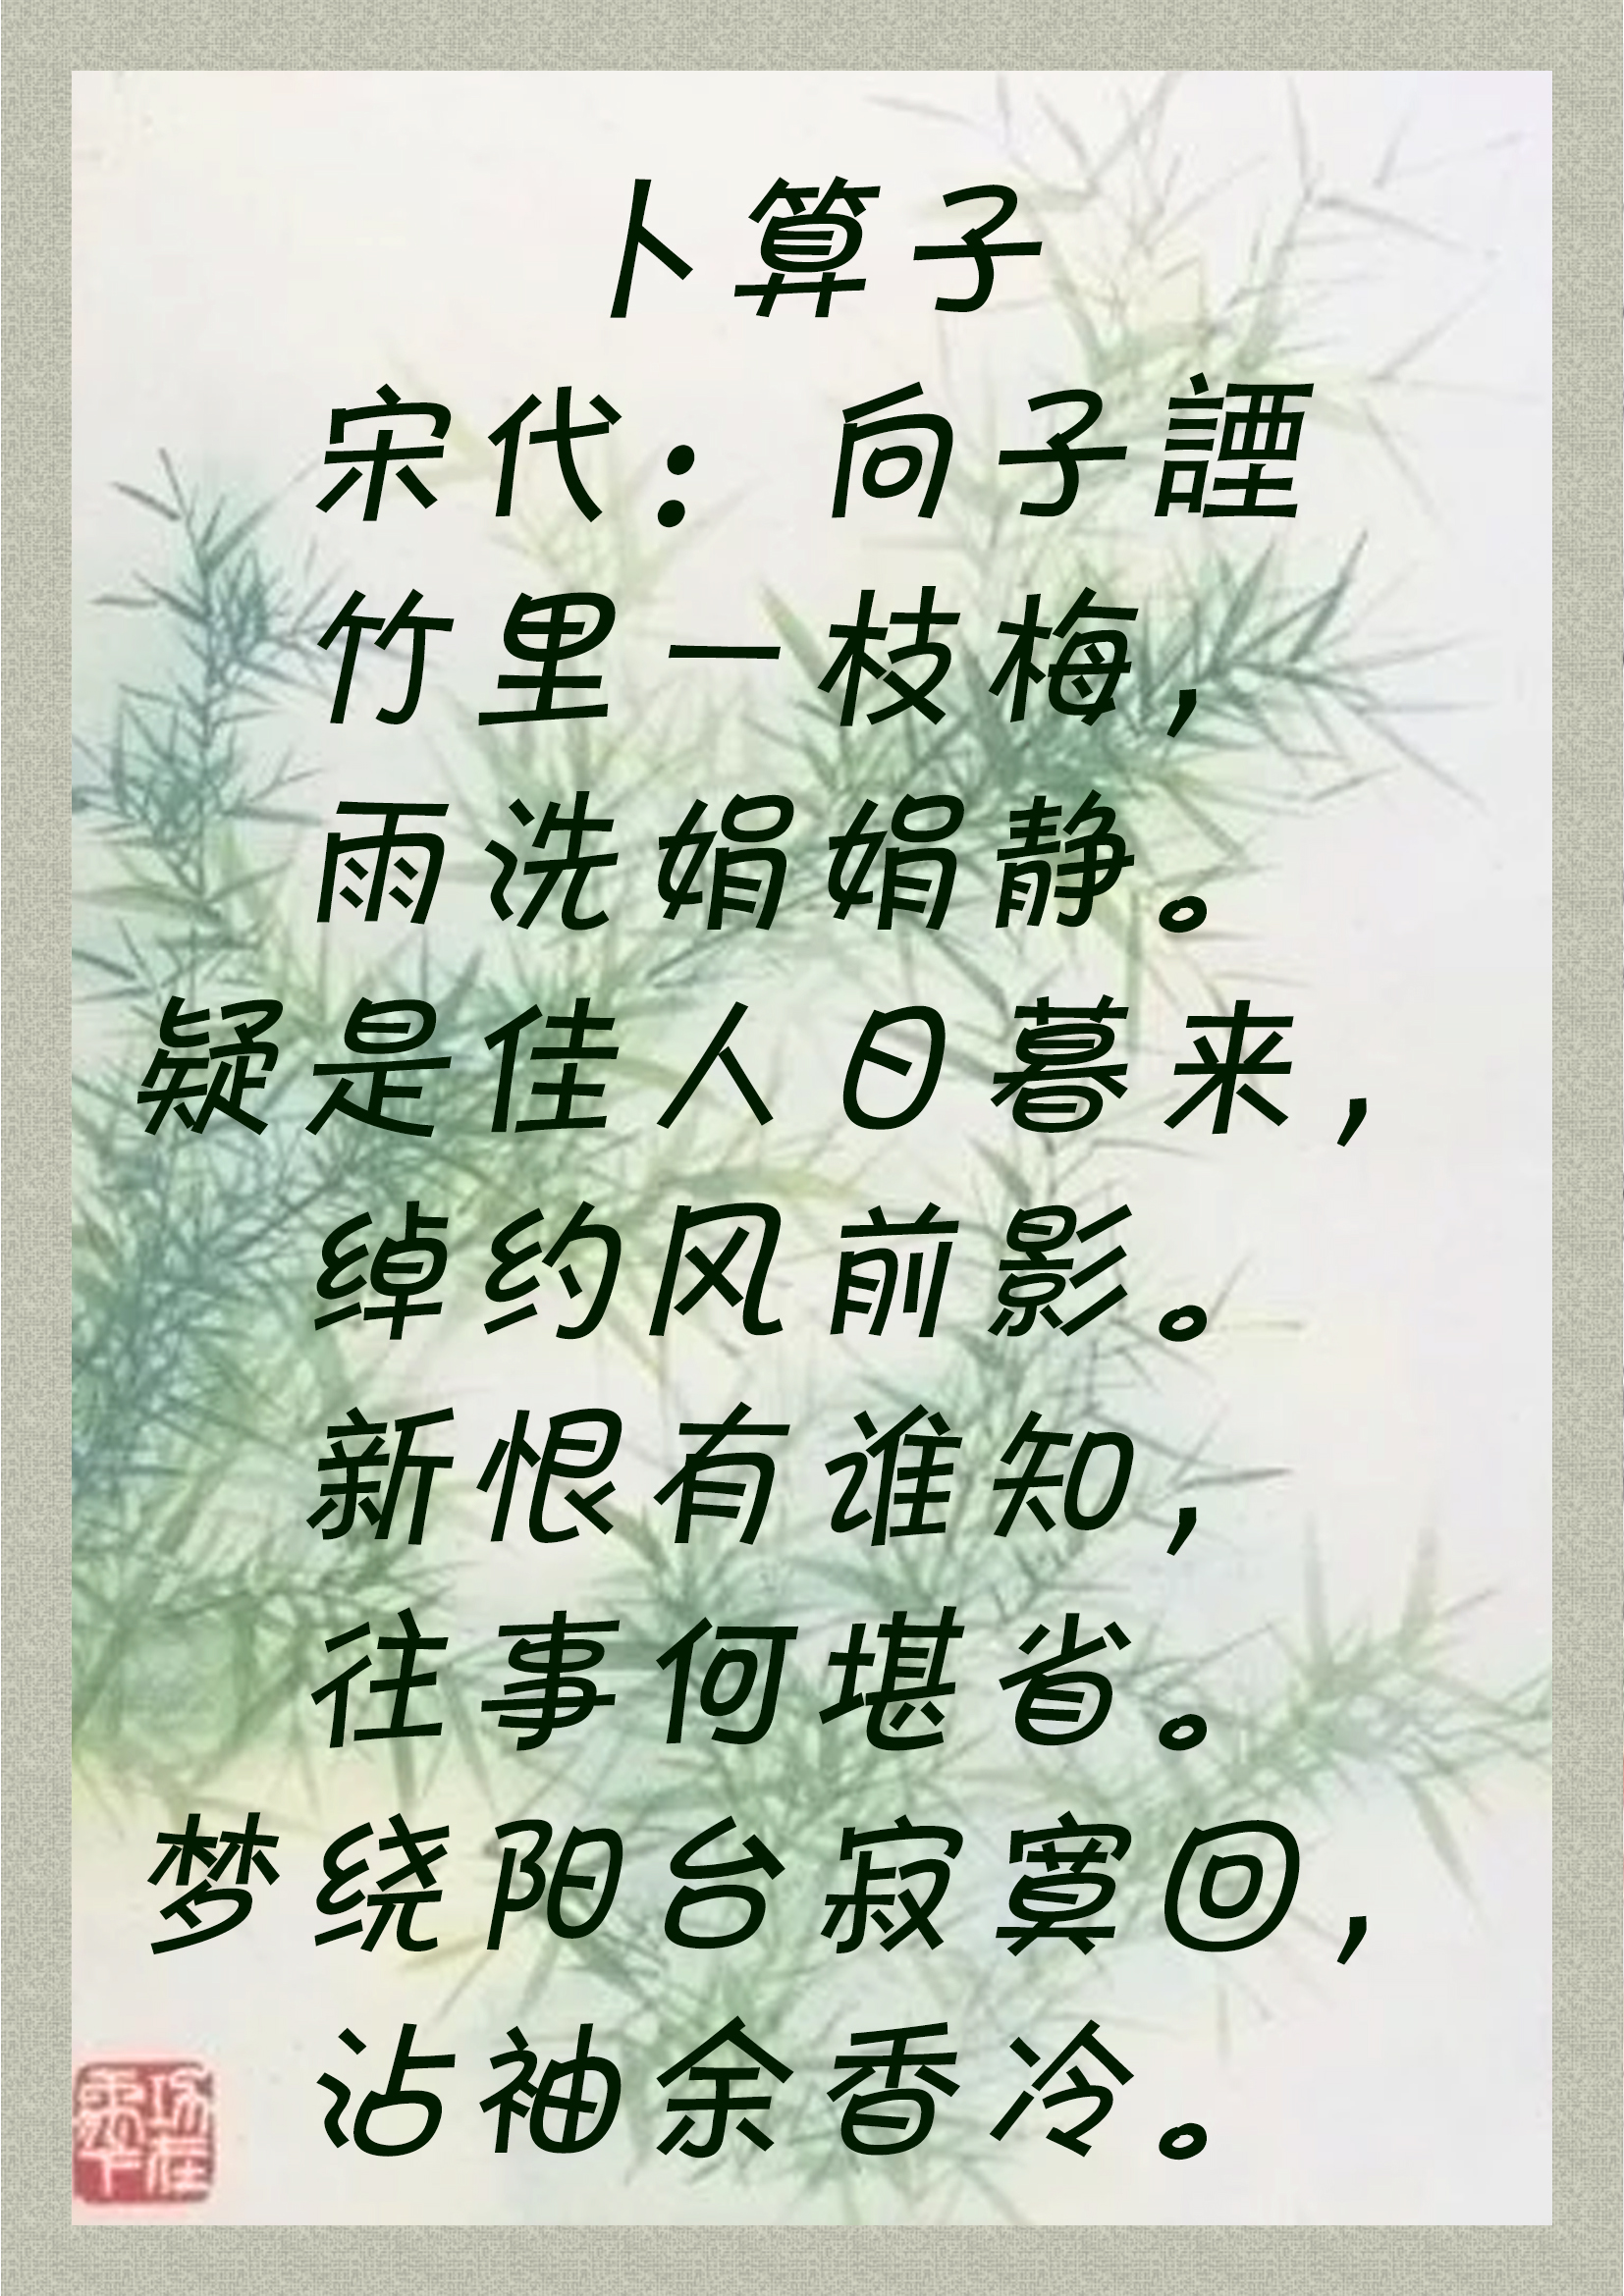 卜算子
宋代：向子諲
竹里一枝梅，
雨洗娟娟静。
疑是佳人日暮来，
绰约风前影。
新恨有谁知，
往事何堪省。
梦绕阳台寂寞回，
沾袖余香冷。